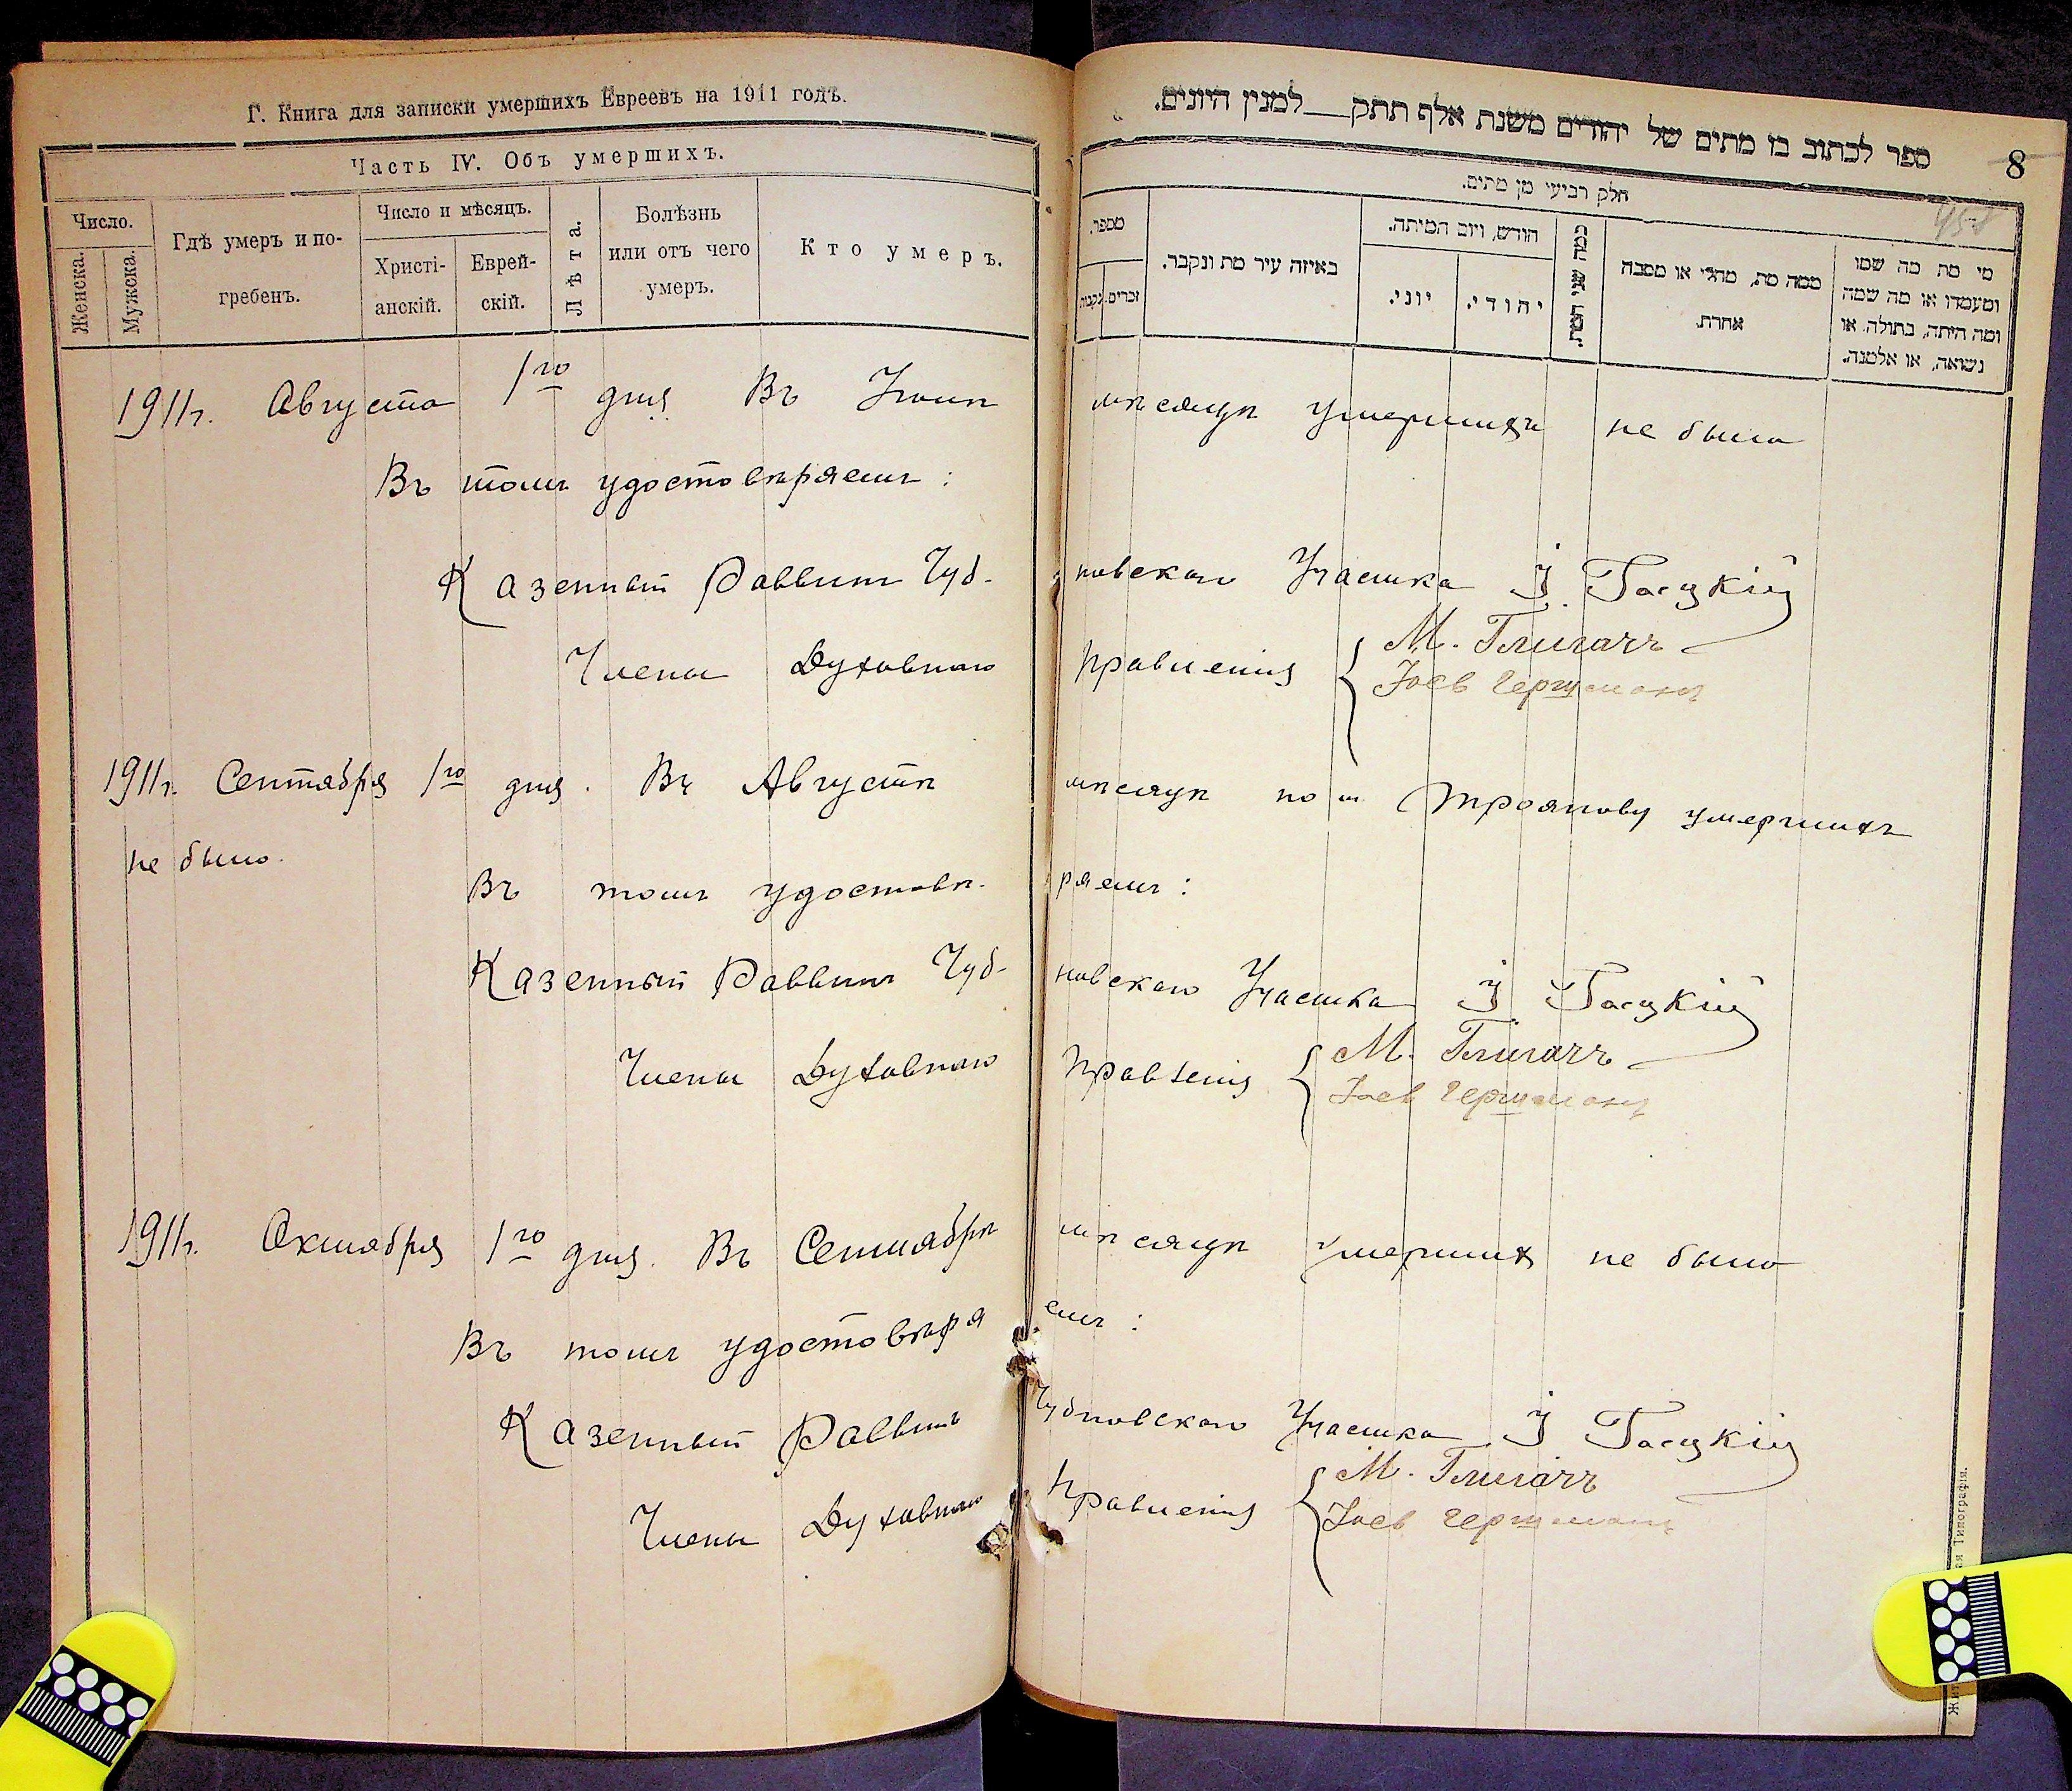 Г. Книга для записки умершихъ Евреевъ на 1911 годъ.
Часть IV. Объ умершихъ.
Число.
Женска.
Мужска.
Гдѣ умеръ и по-
гребенъ.
Число и мѣсяцъ.
Христі-
анскій.
Еврей-
скій.
Лѣта.
Болѣзнь
или отъ чего
умеръ.
Кто умеръ.
ספר לכתוב בו מתים של יהודים משנת אלף תתק__למנין היונים.
8
חלק רביעי מן מתים.
מספר.
זכרים.
נקבות
באיזה עיר מת ונקבר.
חודש, ויום המיתה.
יוני.
יהודי.
כמה שני המת.
ממה מת, מחלי או מסבה
אחרת.
מי מת מה שמו
ומעמדו או מה שמה
ומה היתה, בתולה, או
נשואה, או אלמנה.
1911г. Августа 1го дня Въ Іюлѣ мѣсяцѣ умершихъ не было
Въ томъ удостовѣряемъ:
Казенный Раввинъ Чуд-новскаго Участка І Гасцкій
Члены Духовнаго Правленія М. Глигачъ
1911г. Сентября 1го дня. Въ Августѣ мѣсяцѣ по м Троянову умершихъ
не было.
Въ томъ удостовѣ-ряемъ:
Казенный Раввинъ Чуд-новскаго Участка І Гасцкій
Члены Духовнаго Правленія М. Глигачъ
1911г. Октября 1го дня. Въ Сентябрѣ мѣсяцѣ умерших не было
Въ томъ удостовѣря емъ:
Казенный Раввинъ Чудновскаго Участка І Гасцкій
Члены Духовнаго Правленія М. Глигачъ